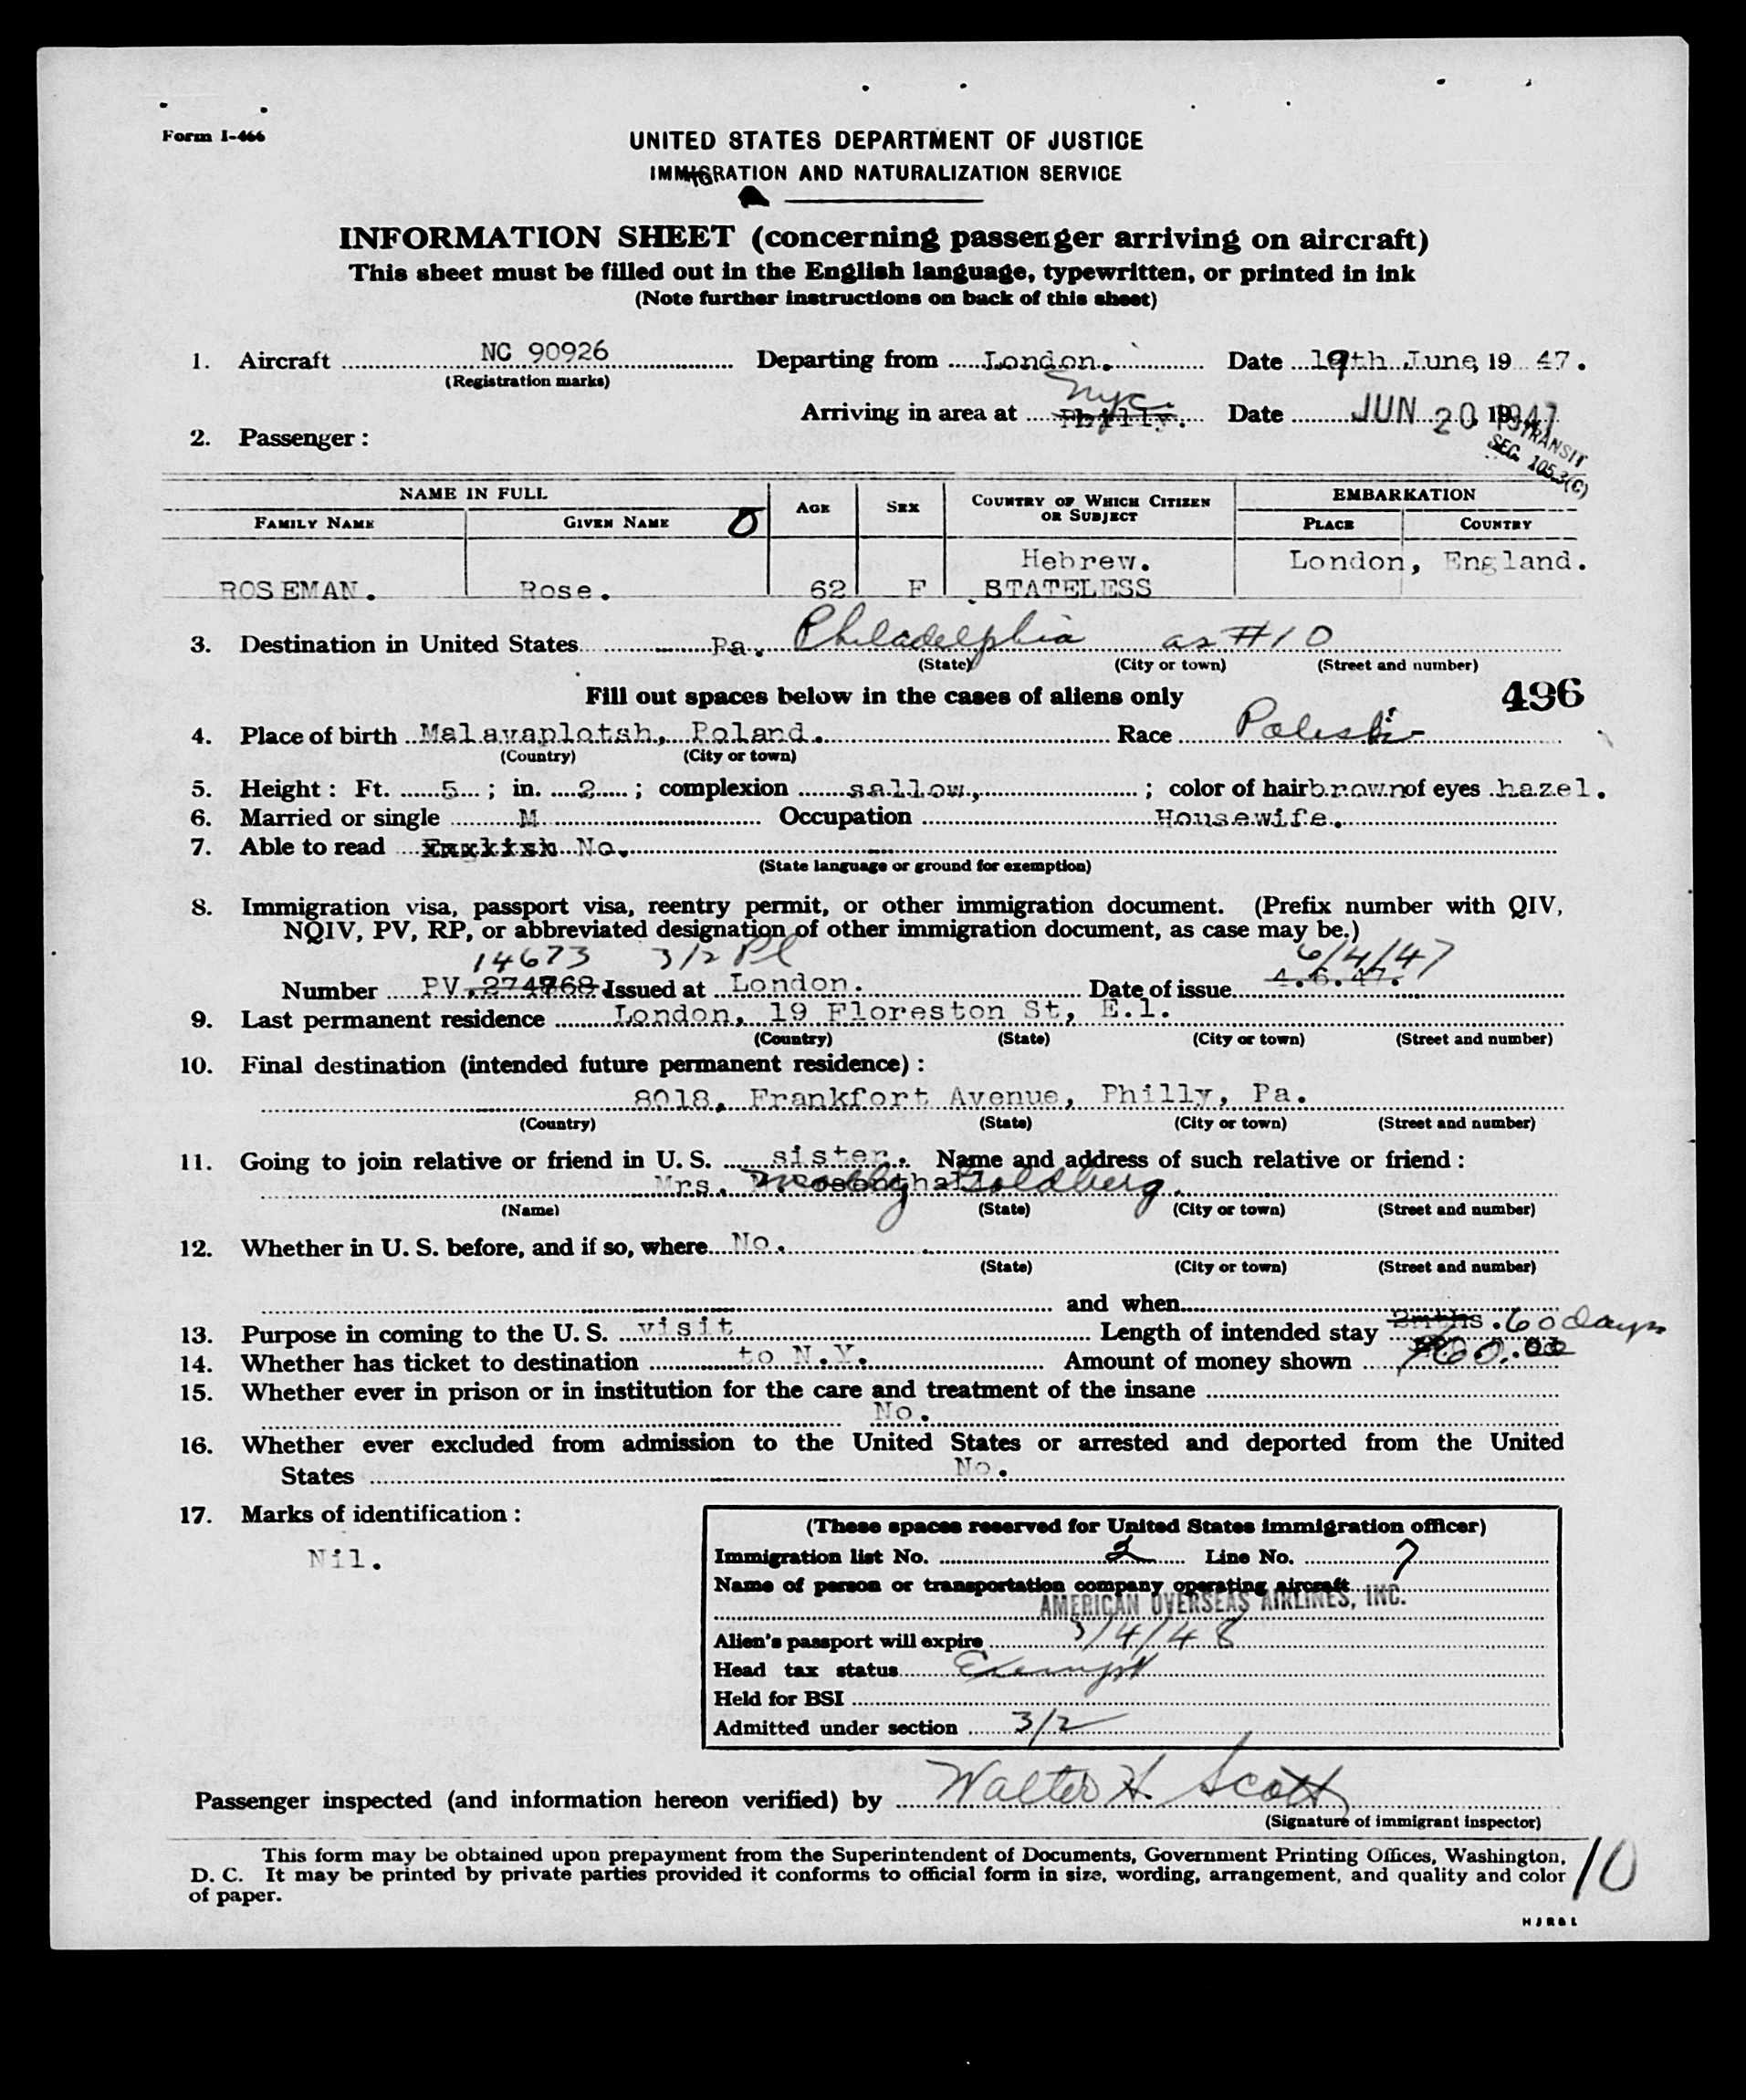 Form I-466
UNITED STATES DEPARTMENT OF JUSTICE
IMMIGRATION AND NATURALIZATION SERVICE
INFORMATION SHEET (concerning passenger arriving on aircraft)
This sheet must be filled out in the English language, typewritten, or printed in ink
(Note further instructions on back of this sheet)
1. Aircraft NC 90926 Departing from London. Date 19th June, 19 47.
(Registration marks)
Arriving in area at Philly. NYC. Date JUN 20 1947
2. Passenger:
TRANSIT
SEC. 105.3(C)
NAME IN FULL AGE SEX COUNTRY OF WHICH CITIZEN OR SUBJECT EMBARKATION
FAMILY NAME GIVEN NAME PLACE COUNTRY
Hebrew. London, England.
ROSEMAN. Rose. 62 F STATELESS
3. Destination in United States Pa. Philadelphia as #10
(State) (City or town) (Street and number)
Fill out spaces below in the cases of aliens only 496
4. Place of birth Malavaplotsh, Poland. Race Polish
(Country) (City or town)
5. Height: Ft. 5; in. 2; complexion sallow,; color of hair brown of eyes hazel.
6. Married or single M Occupation Housewife.
7. Able to read English No.
(State language or ground for exemption)
8. Immigration visa, passport visa, reentry permit, or other immigration document. (Prefix number with QIV,
NQIV, PV, RP, or abbreviated designation of other immigration document, as case may be.)
14673 3/2 Pl 6/4/47
Number PV. Issued at London. Date of issue 4.6.47.
9. Last permanent residence London, 19 Floreston St, E.1.
(Country) (State) (City or town) (Street and number)
10. Final destination (intended future permanent residence):
8018, Frankfort Avenue, Philly, Pa.
(Country) (State) (City or town) (Street and number)
11. Going to join relative or friend in U. S. sister. Name and address of such relative or friend:
Mrs. Goldberg.
(Name) (State) (City or town) (Street and number)
12. Whether in U. S. before, and if so, where No.
(State) (City or town) (Street and number)
and when
13. Purpose in coming to the U. S. visit Length of intended stay 2mths. 60 days
14. Whether has ticket to destination to N.Y. Amount of money shown
15. Whether ever in prison or in institution for the care and treatment of the insane
No.
16. Whether ever excluded from admission to the United States or arrested and deported from the United
States No.
17. Marks of identification:
Nil.
(These spaces reserved for United States immigration officer)
Immigration list No. 2 Line No. 7
Name of person or transportation company operating aircraft
AMERICAN OVERSEAS AIRLINES, INC.
Alien's passport will expire 3/4/48
Head tax status Exempt
Held for BSI
Admitted under section 3/2
Passenger inspected (and information hereon verified) by Walter H. Scott
(Signature of immigrant inspector)
This form may be obtained upon prepayment from the Superintendent of Documents, Government Printing Offices, Washington,
D. C. It may be printed by private parties provided it conforms to official form in size, wording, arrangement, and quality and color
of paper.
10
H J R & L